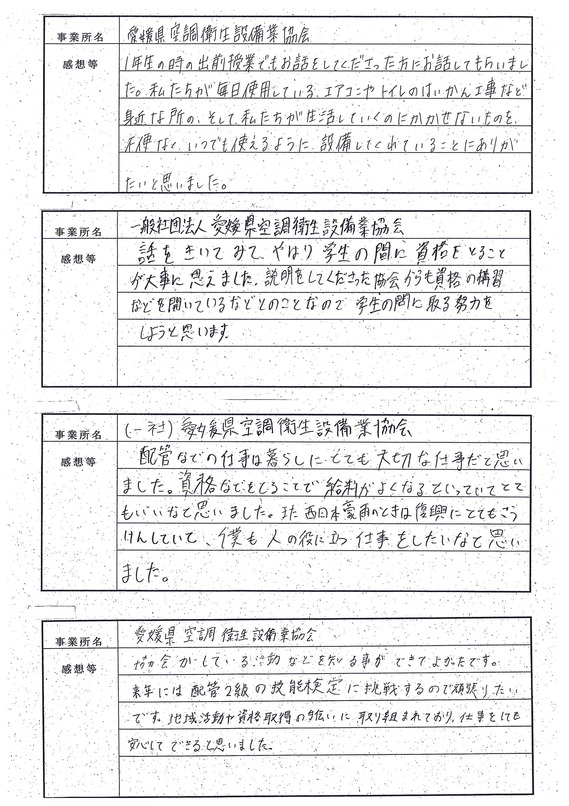 事業所名 愛媛県空調衛生設備業協会
感想等 1年生の時の出前授業でもお話をしてくださった方にお話してもらいまし
た。私たちが毎日使用している、エアコンやトイレのはいかん工事など
身近な所の、そして私たちが生活していくのにかかせないものを、
不便なく、いつでも使えるように、設備してくれていることにありが
たいと思いました。
事業所名 一般社団法人 愛媛県空調衛生設備業協会
感想等 話をきいてみて、やはり学生の間に資格をとること
が大事に思えました。説明をしてくださった協会からも資格の講習
などを開いているなどとのことなので学生の間に取る努力を
しようと思います。
事業所名 (一社)愛媛県空調衛生設備業協会
感想等 配管などの仕事は暮らしにとても大切な仕事だと思い
ました。資格などをとることで給料がよくなるといっていてとて
もいいなと思いました。また西日本豪雨のときは復興にとてもこう
けんしていて、僕も人の役に立つ仕事をしたいなと思い
ました。
事業所名 愛媛県空調衛生設備業協会
感想等 協会がしている活動などを知る事ができてよかったです。
来年には配管2級の技能検定に挑戦するので頑張りたい
です。地域活動や資格取得の手伝いに取り組まれており、仕事をしても
安心してできると思いました。